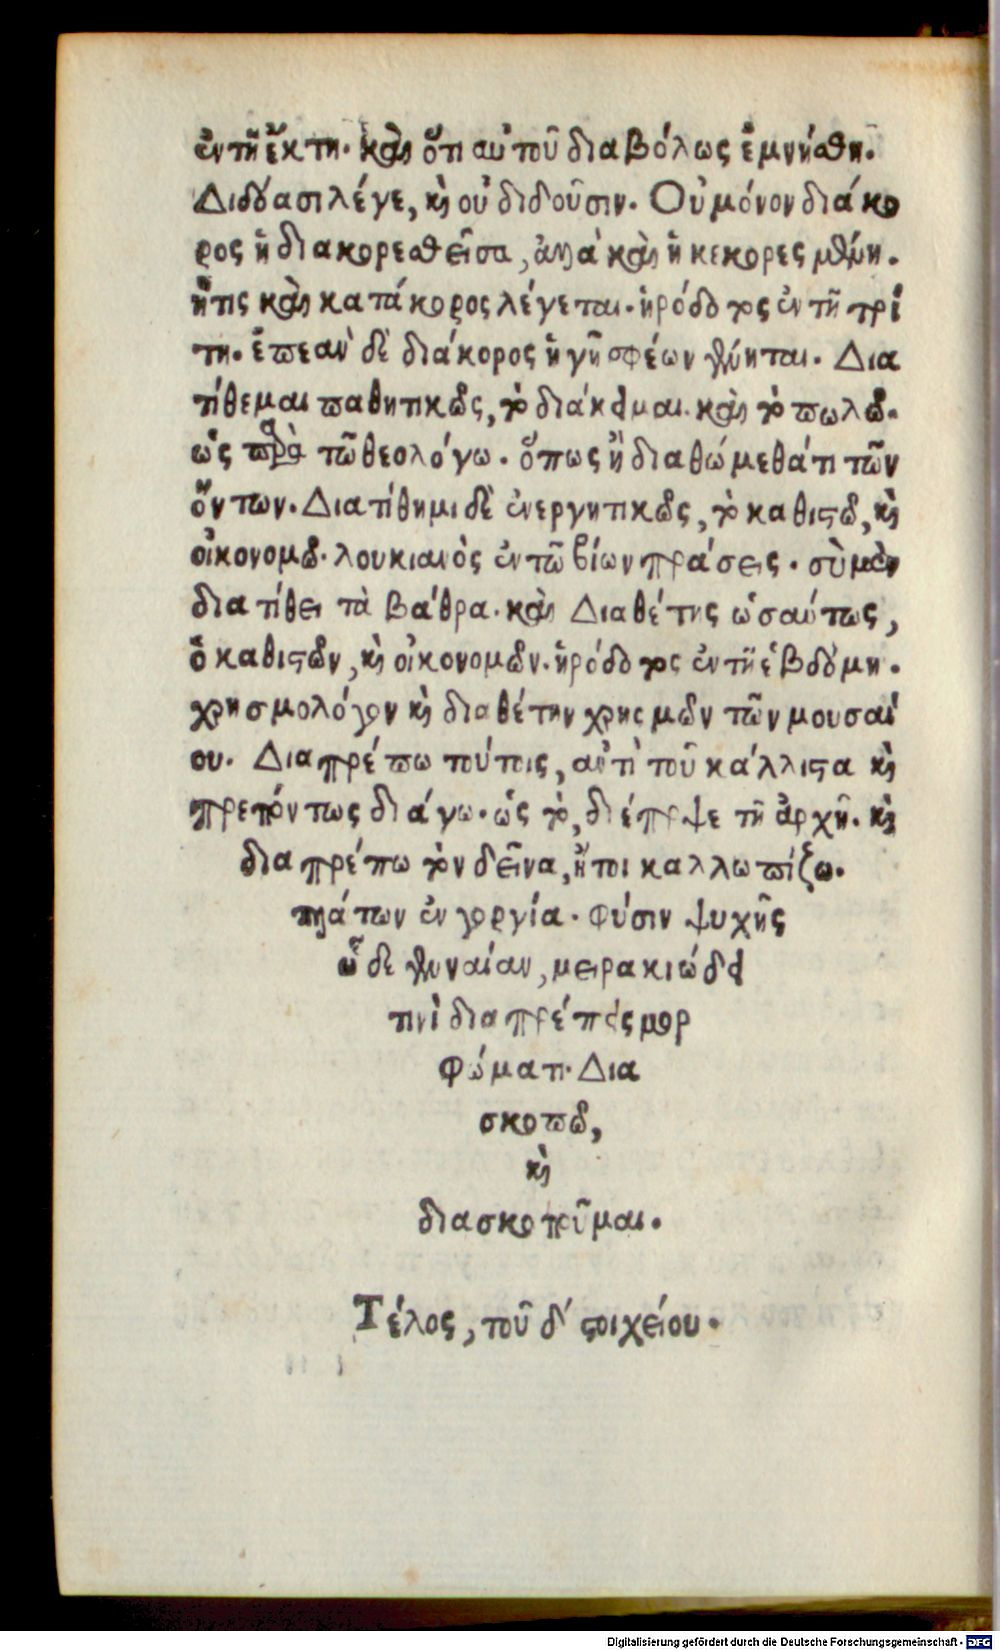 ἐν τῇ ἕκτη. καὶ ὅτι αὐτοῦ διαβόλως ἐμνήσθη.
Διδόασι λέγε, καὶ οὐ διδοῦσιν. Οὐ μόνον διάκο
ρος ἡ διακορεσθεῖσα, ἀλλὰ καὶ ἡ κεκορεσμένη.
ἥτις καὶ κατάκορος λέγεται. ἡρόδοτος ἐν τῇ τρί
τη. ἐπεὰν δὲ διάκορος ἡ γῆ σφέων γένηται. Δια
τίθεμαι παθητικῶς, τὸ διάκειμαι. καὶ τὸ πωλῶ.
ὡς παρὰ τῶ θεολόγω. ὅπως ἢ διαθώμεθά τι τῶν
ὄντων. Διατίθημι δὲ ἐνεργητικῶς, τὸ καθιστῶ, καὶ
οἰκονομῶ. λουκιανὸς ἐν τῶ βίων πράσεις. σὺ μὲν
διατίθει τὰ βάθρα. καὶ Διαθέτης ὡσαύτως,
ὁ καθιστῶν, καὶ οἰκονομῶν. ἡρόδοτος ἐν τῇ ἑβδόμη.
χρησμολόγον καὶ διαθέτην χρησμῶν τῶν μουσαί
ου. Διαπρέπω τούτοις, ἀντὶ τοῦ κάλλιστα καὶ
πρεπόντως διάγω. ὡς τὸ, διέπρεψε τῇ ἀρχῇ. καὶ
διαπρέπω τὸν δεῖνα, ἤτοι καλλωπίζω.
πλάτων ἐν γοργία. Φύσιν ψυχῆς
ὧδε γενναίαν, μειρακιώδει
τινὶ διαπρέπεις μορ
φώματι. Δια
σκοπῶ,
καὶ
διασκοποῦμαι.
Τέλος, τοῦ δ´ στοιχείου.
Digitalisierung gefördert durch die Deutsche Forschungsgemeinschaft - DFG